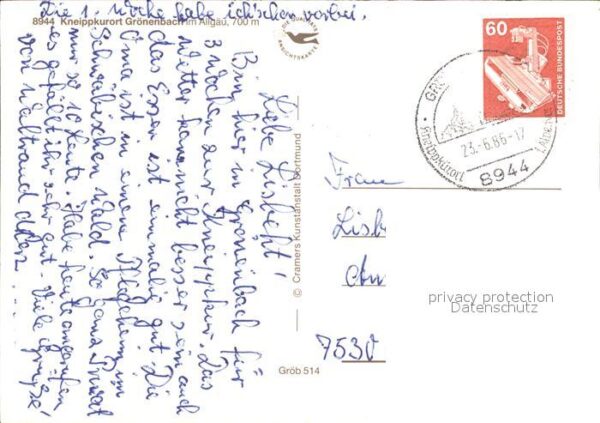 Die 1. Woche habe ich schon vorbei.
8944 Kneippkurort Grönenbach im Allgäu, 700 m
Liebe Lisbeth!
Bin hier in Grönenbach für
3 Wochen zur Kneippkur. Das
Wetter kann nicht besser sein auch
das Essen ist einmalig gut. Die
Oma ist in einem Pflegheim im
Schwäbischen Wald. So ganz Privat
nur so 10 Leute. Habe heute angerufen
es gefällt ihr sehr gut. Viele Grüße!
von Waltraud
DIE QUALITÄTS
ANSICHTSKARTE
© Cramers Kunstanstalt Dortmund
Gröb 514
60
DEUTSCHE BUNDESPOST
23.-6.86-17
Kneippkurort
8944
Frau
Lisb
Am
7530
privacy protection
Datenschutz